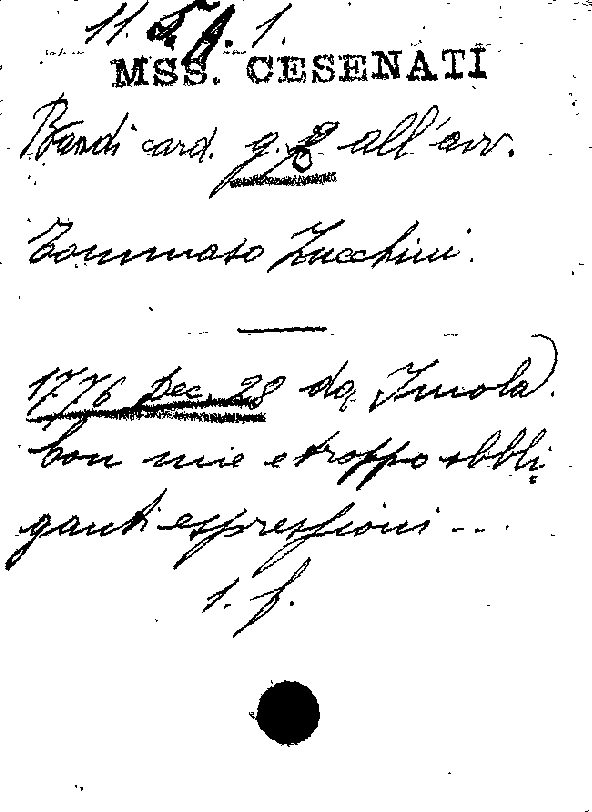 MSS. CESENATI
Bandi card. all'avv.
Tommaso Zucchini.
1776 Dec. 28 da Imola.
Con mie e troppo obbli
ganti espressioni ...
1. f.